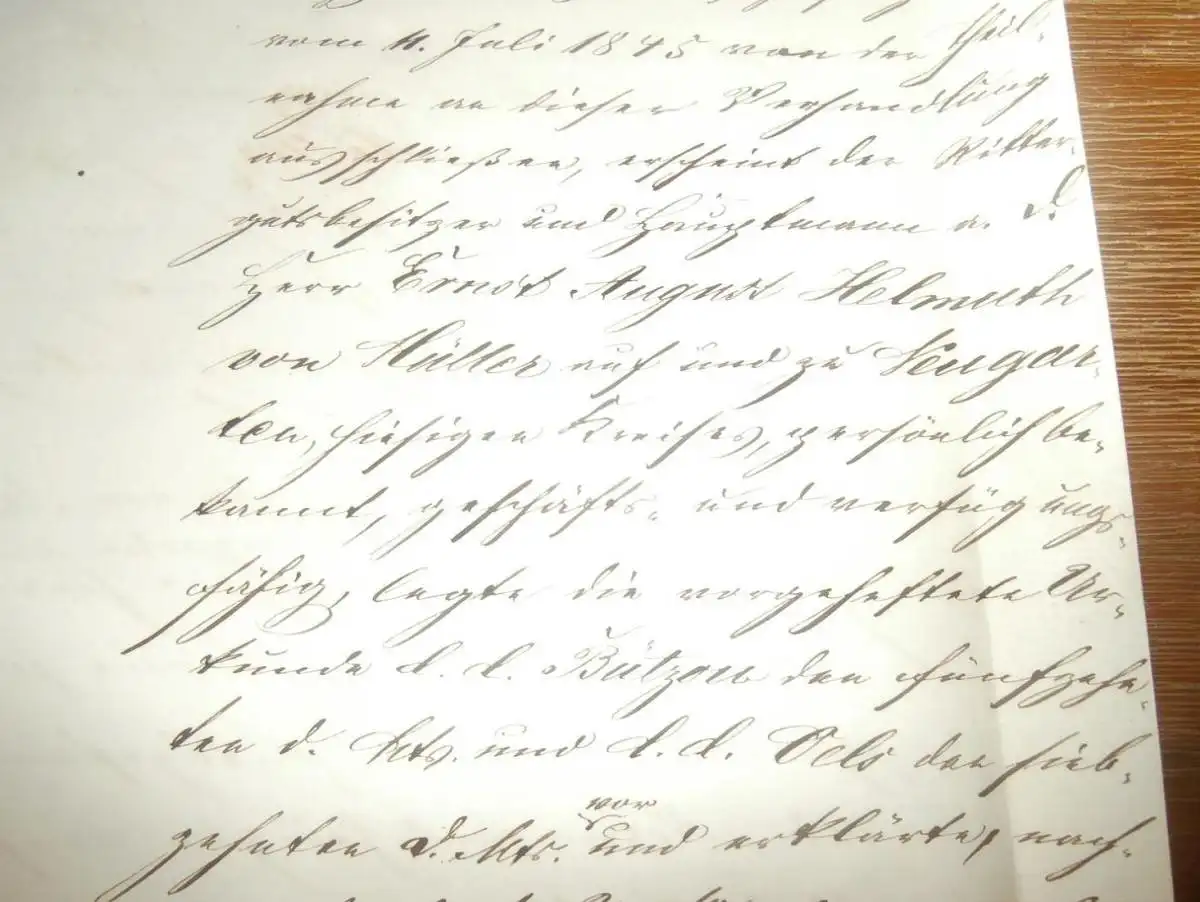 vom 11. Juli 1845 von der Theil-
nahme an dieser Verhandlung
ausschließen, erscheint der Ritter-
gutsbesitzer und Hauptmann a. D.
Herr Ernst August Helmuth
von Müller auf und zu Neugar-
ten, hiesigen Kreises, persönlich be-
kannt, geschäfts- und verfügungs-
fähig, legte die vorgeheftete Ur-
kunde d. d. Bützow den fünfzehn-
ten d. Mts. und d. d. Oels den sieb-
zehnten d. Mts. vor
und erklärte, nach-